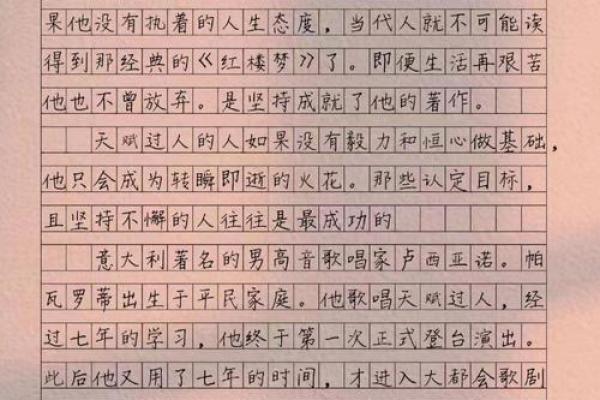 果他没有执着的人生态度，当代人就不可能读
得到那经典的《红楼梦》了。即便生活再艰苦
他也不曾放弃。是坚持成就了他的著作。
天赋过人的人如果没有毅力和恒心做基础，
他只会成为转瞬即逝的火花。那些认定目标，
且坚持不懈的人往往是最成功的
意大利著名的男高音歌唱家卢西亚诺。帕
瓦罗蒂出生于平民家庭。他歌唱天赋过人，经
过七年的学习，他终于第一次正式登台演出。
此后他又用了七年的时间，才进入大都会歌剧